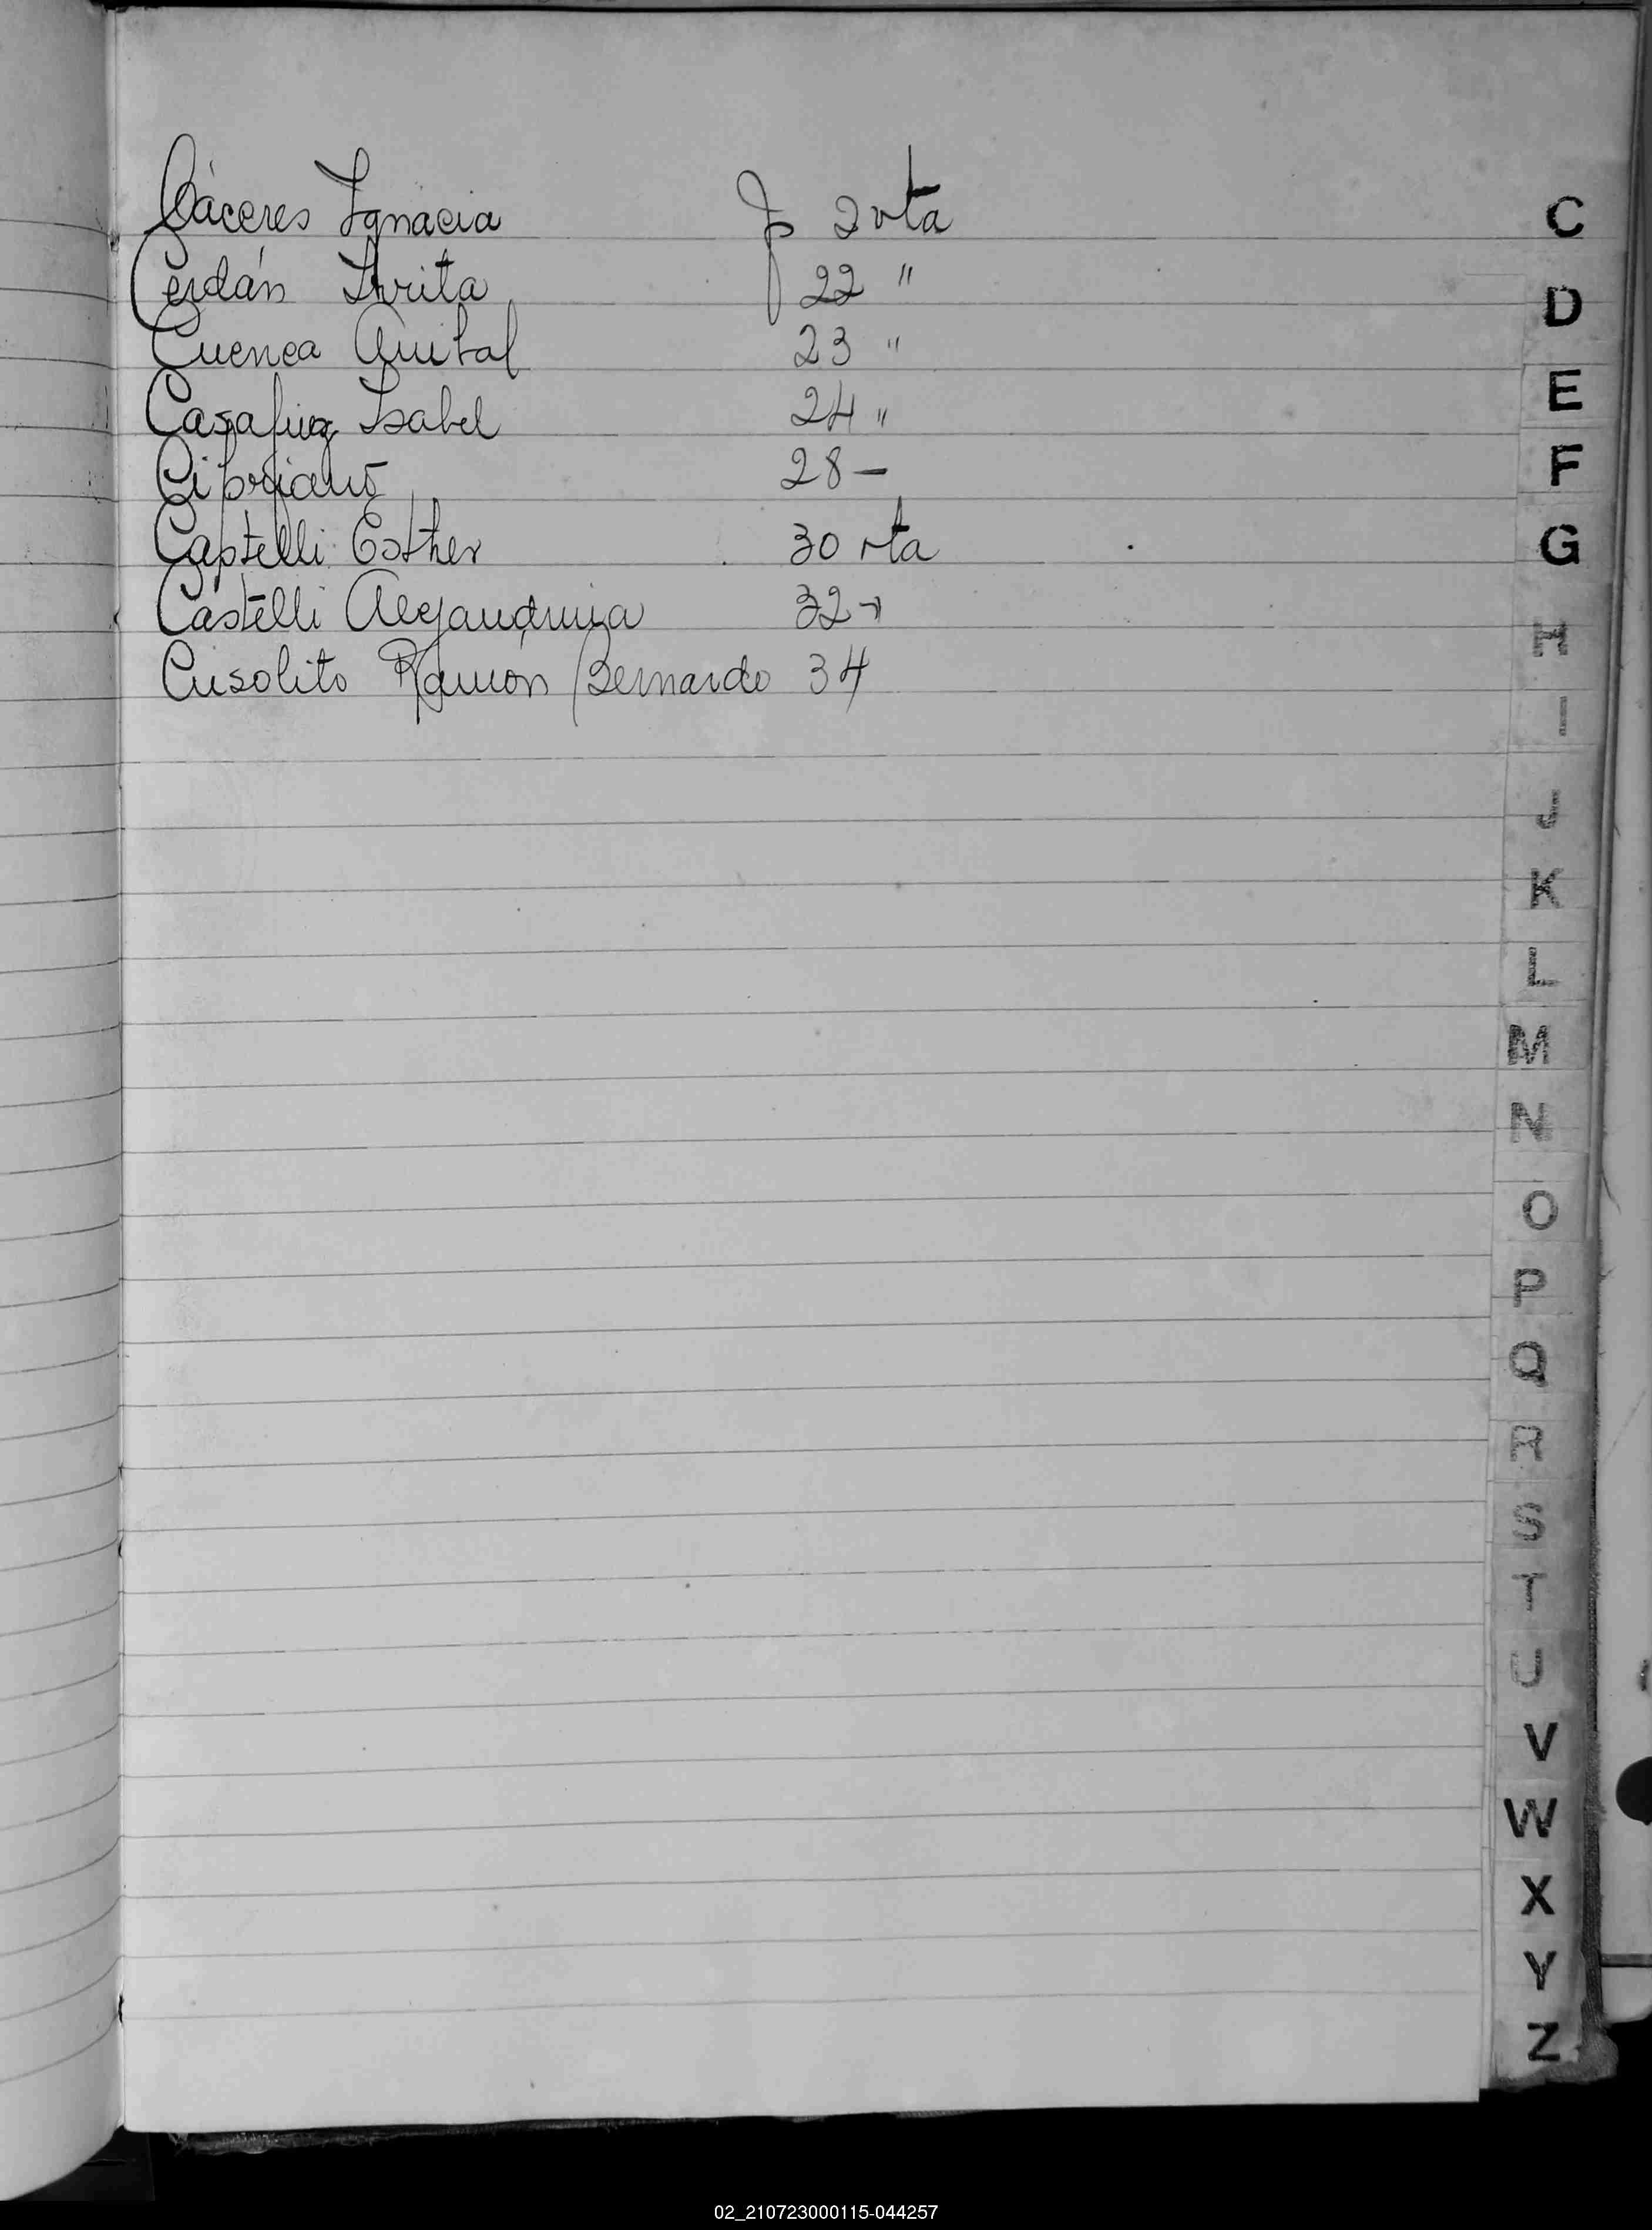 Cáceres Ignacia fo 2 vta
Cerdán Irita 22 "
Cuenca Quital 23 "
Casafuz Isabel 24 "
Cipriano 28 -
Castelli Esther 30 vta
Castelli Alejandrina 32 -
Cusolito Ramón Bernardo 34
C
D
E
F
G
H
I
J
K
L
M
N
O
P
Q
R
S
T
U
V
W
X
Y
Z
02_210723000115-044257